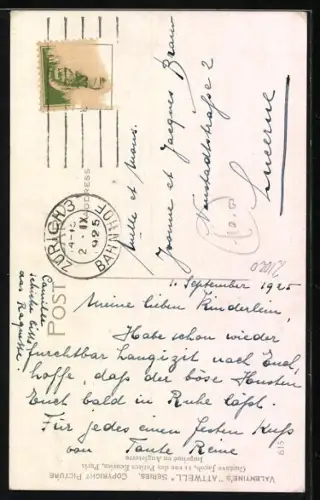 Mlle et Mons.
Yvonne et Jacques Braun
Neustadtstraße 2
Lucerne
ZÜRICH 3
2.IX.
1925
BAHNHOF
ADDRESS
POST
1. September 1925
Meine lieben Kinderlein,
Habe schon wieder
furchtbar Langizit nach Euch,
hoffe, daß der böse Husten
Euch bald in Ruhe läßt.
Für jedes einen festen Kuß
von Tante Reine
Camille
schicke bitte
das
VALENTINE'S "ATTWELL" SERIES. COPYRIGHT PICTURE
Gustave Jacob, 11 rue des Petites Ecuries, Paris
Imprimé en Angleterre